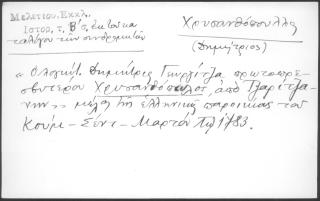 Μελετίου. Εκκλ.
Ιστορ. τ. Β΄ σ. εκ του κα
ταλόγου των συνδρομητών
Χρυσανθόπουλλος
(Δημήτριος)
« Ο λογιώτ. Δημήτριος Γεωργίτζα πρωτοπρε-
σβυτέρου Χρυσανθόπουλος, από Τζαρίτζα-
νην » μέλος της ελληνικής παροικίας του
Κούμ - Σέντ - Μαρτόν 1783.